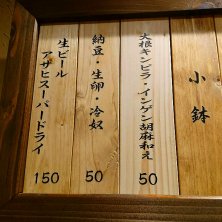 小鉢
大根キンピラ・インゲン胡麻和え
50
納豆・生卵・冷奴
50
生ビール
アサヒスーパードライ
150